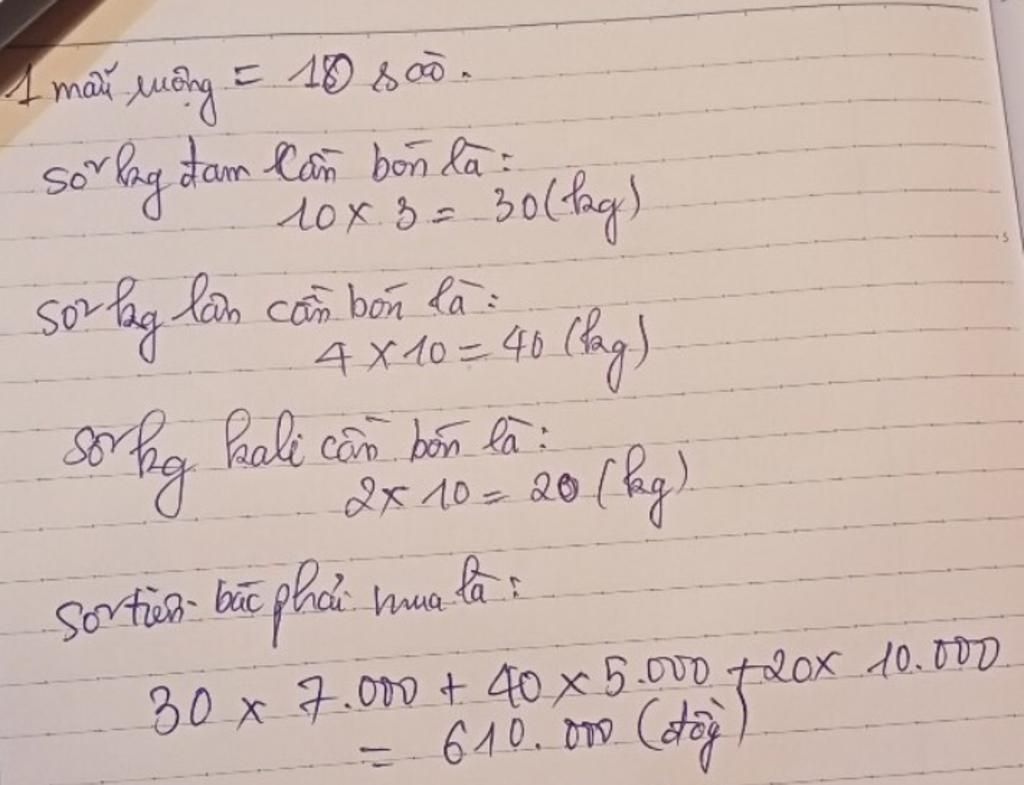 1 mẫu ruộng = 10 sào.
số kg đam cần bón là:
10 x 3 = 30 (kg)
số kg lân cần bón là:
4 x 10 = 40 (kg)
số kg kali cần bón là:
2 x 10 = 20 (kg)
số tiền bác phải mua là:
30 x 7.000 + 40 x 5.000 + 20 x 10.000
= 610.000 (đồg)